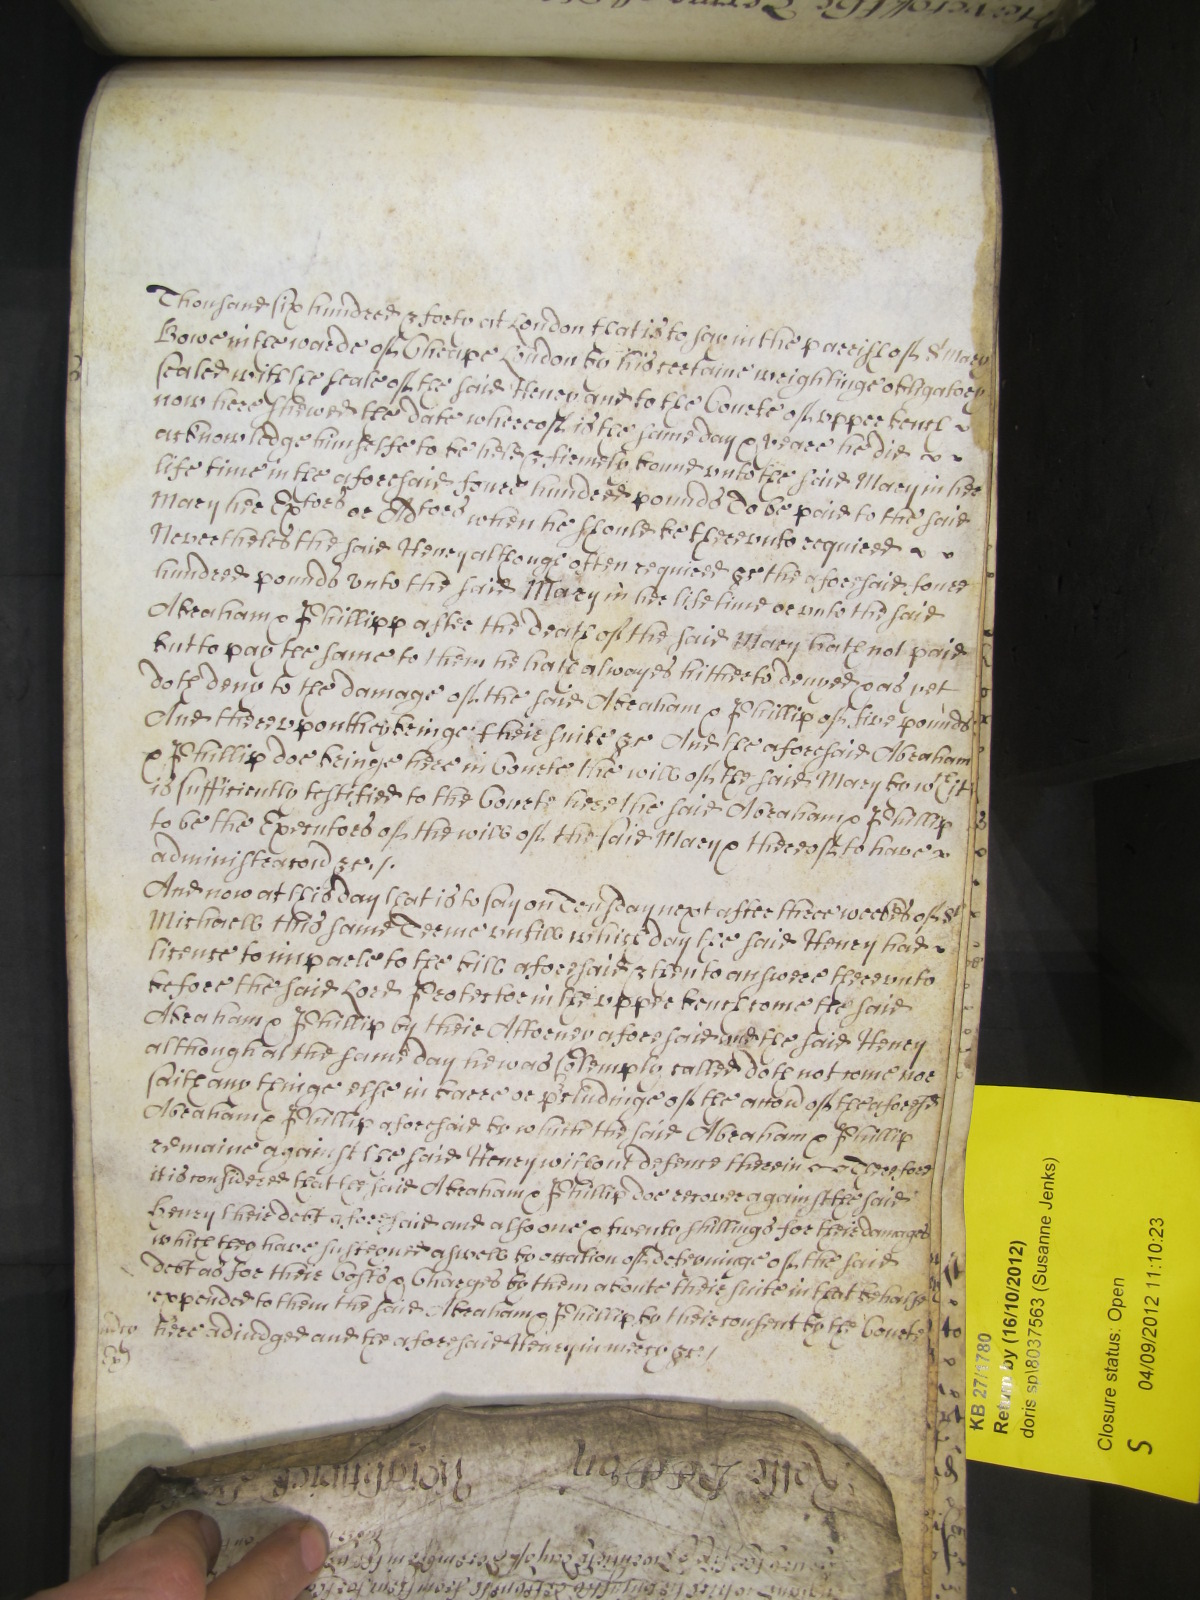 Thousand six hundred & forty at London that is to say in the parish of St Mary
Bowe in the warde of Cheape London by his certaine weightinge obligatory
sealed with the seale of the said Henry and to the Courte of upper bench
now here shewed the date whereof is the same day & yeare he did
acknowledge himselfe to be held & firmely bound unto the said Mary in her
life time in the aforesaid foure hundred pounds To be paid to the said
Mary her Extors or Adtors when he should be thereunto required
Neverthelesse the said Henry althoughe often required &c the aforesaid foure
hundred pounds unto the said Mary in her life time or unto the said
Abraham & Phillipp after the death of the said Mary hath not paid
but to pay the same to them he hath alwayes hitherto denyed & as yet
doth deny to the damage of the said Abraham & Phillip of five pounds
And thereupon they bringe their suite &c And the aforesaid Abraham
& Phillip doe bringe here in Courte the will of the said Mary by wch it
is sufficiently testified to the Courte here the said Abraham & Phillip
to be the Executors of the will of the said Mary & thereof to have
administracon &c./.
And now at this day that is to say on Teusday next after three weekes of St
Michaell this same Terme untill which day the said Henry had
licence to imparle to the bill aforesaid & then to answere thereunto
before the said Lord Protector in the upper bench come the said
Abraham & Phillip by their Attorney aforesaid and the said Henry
although at the same day he was solemply called doth not come nor
saith any thinge else in barre or precludinge of the accon of the aforesd
Abraham & Phillip aforesaid by which the said Abraham & Phillip
remaine against the said Henry without defence therein Therefore
it is considered that the said Abraham & Phillip doe recover against the said
Henry their debt aforesaid and also one & twenty shillings for their damages
which they have susteyned aswell by occation of deteyninge of the said
debt as for their Costs & Charges by them aboute their suite in that behalfe
expended to them the said Abraham & Phillip by their consent by the Courte
here adjudged and the aforesaid Henry in mercy &c./
KB 27/1780
Return by (16/10/2012)
doris sp\8037563 (Susanne Jenks)
Closure status: Open
S 04/09/2012 11:10:23